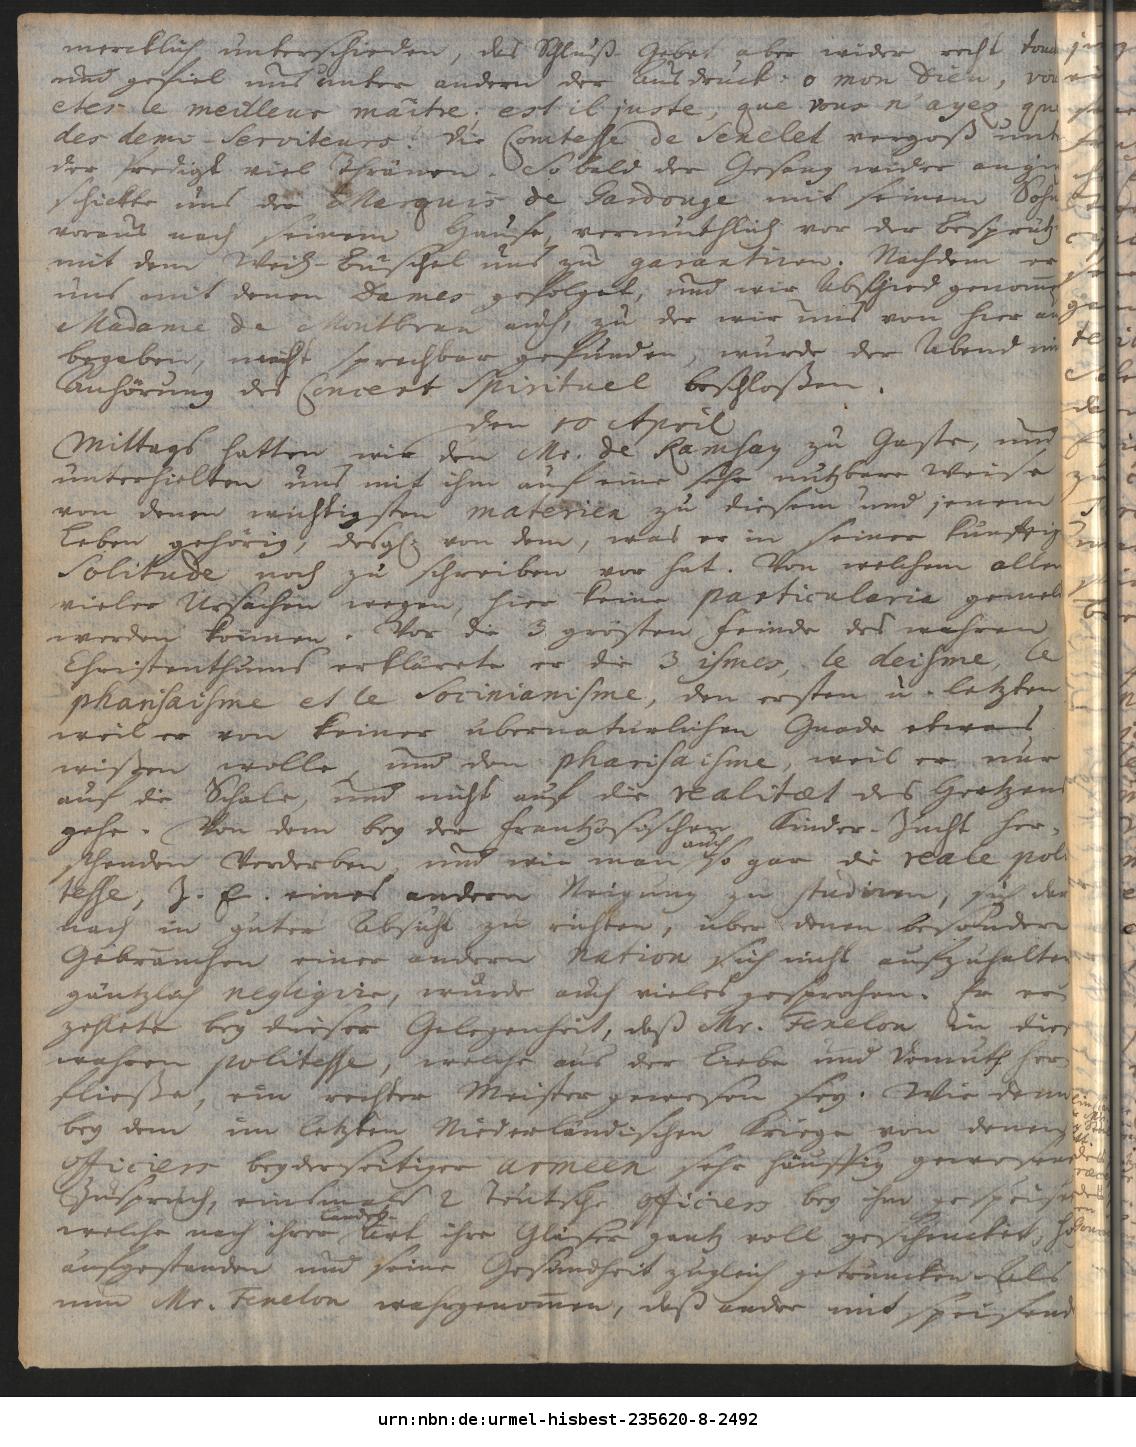 mercklich unterschieden, das Schluß Gebet aber wider recht
und gefiel uns unter andern der Ausdruck: o mon Dieu, vou
etes le meilleur maitre; est il juste, que vous n'ayez que
des demi-Serviteurs! die Comtesse de Senelet vergoß unt
der Predigt viel Thränen. So bald der Gesang wider
schickte uns der Marquis de Gardouge mit seinem Sohn
voraus nach seinem Hause, vermuthlich vor der Besprütz
mit dem Weih-Buschel uns zu garantiren. Nachdem er
uns mit denen Dames gefolget, und wir Abschied genomme
Madame de Montbrun auch, zu der wir uns von hier
begeben, nicht sprechbar gefunden, wurde der Abend mit
Anhörung des Concert Spirituel beschloßen.
den 10 April
Mittags hatten wir den Mr. de Ramsay zu Gaste, und
unterhielten uns mit ihm auf eine sehr nutzbare Weise
von denen wichtigsten materien zu diesem und jenem
Leben gehörig, desgl. von dem, was er in seiner kunftig
Solitude noch zu schreiben vor hat. Von welchem allen
vieler Ursachen wegen, hier keine particularia gemeld
werden können. Vor die 3 grösten Feinde des wahren
Christenthums erklärete er die 3 ismes, le deisme, le
pharisaisme et le Socinianisme, den ersten u. letzten
weil er von keiner ubernaturlichen Gnade etwas
wißen wolle, und den pharisaisme, weil er nur
auf die Schale, und nicht auf die realitæt des Hertzens
gehe. Von dem bey der frantzösischen Kinder-Zucht her-
schenden Verderben, und wie man auch so gar die reale poli
tesse, Z. E. eines andern Neigung zu studiren, sich dar
nach in guter Absicht zu richten, über denen besondern
Gebräuchen einer andern Nation sich nicht aufzuhalten
gäntzlich negligire, wurde auch vieles gesprochen. Er er
zehlete bey dieser Gelegenheit, daß Mr. Fenelon in dies
wahren politesse, welche aus der Liebe und Demuth her
fließe, ein rechter Meister gewesen sey. Wie denn
bey dem im letzten Niederländischen Kriege von denen
officiers beyderseitiger armeen sehr häuffig gewesenen
Zuspruch, einsmals 2 teutsche officiers bey ihm gespeiset
welche nach ihrer Landes-Art ihre Gläser gantz voll geschencket,
aufgestanden und seine Gesundheit zugleich getruncken. Als
nun Mr. Fenelon wahrgenommen, daß andre mit speisend